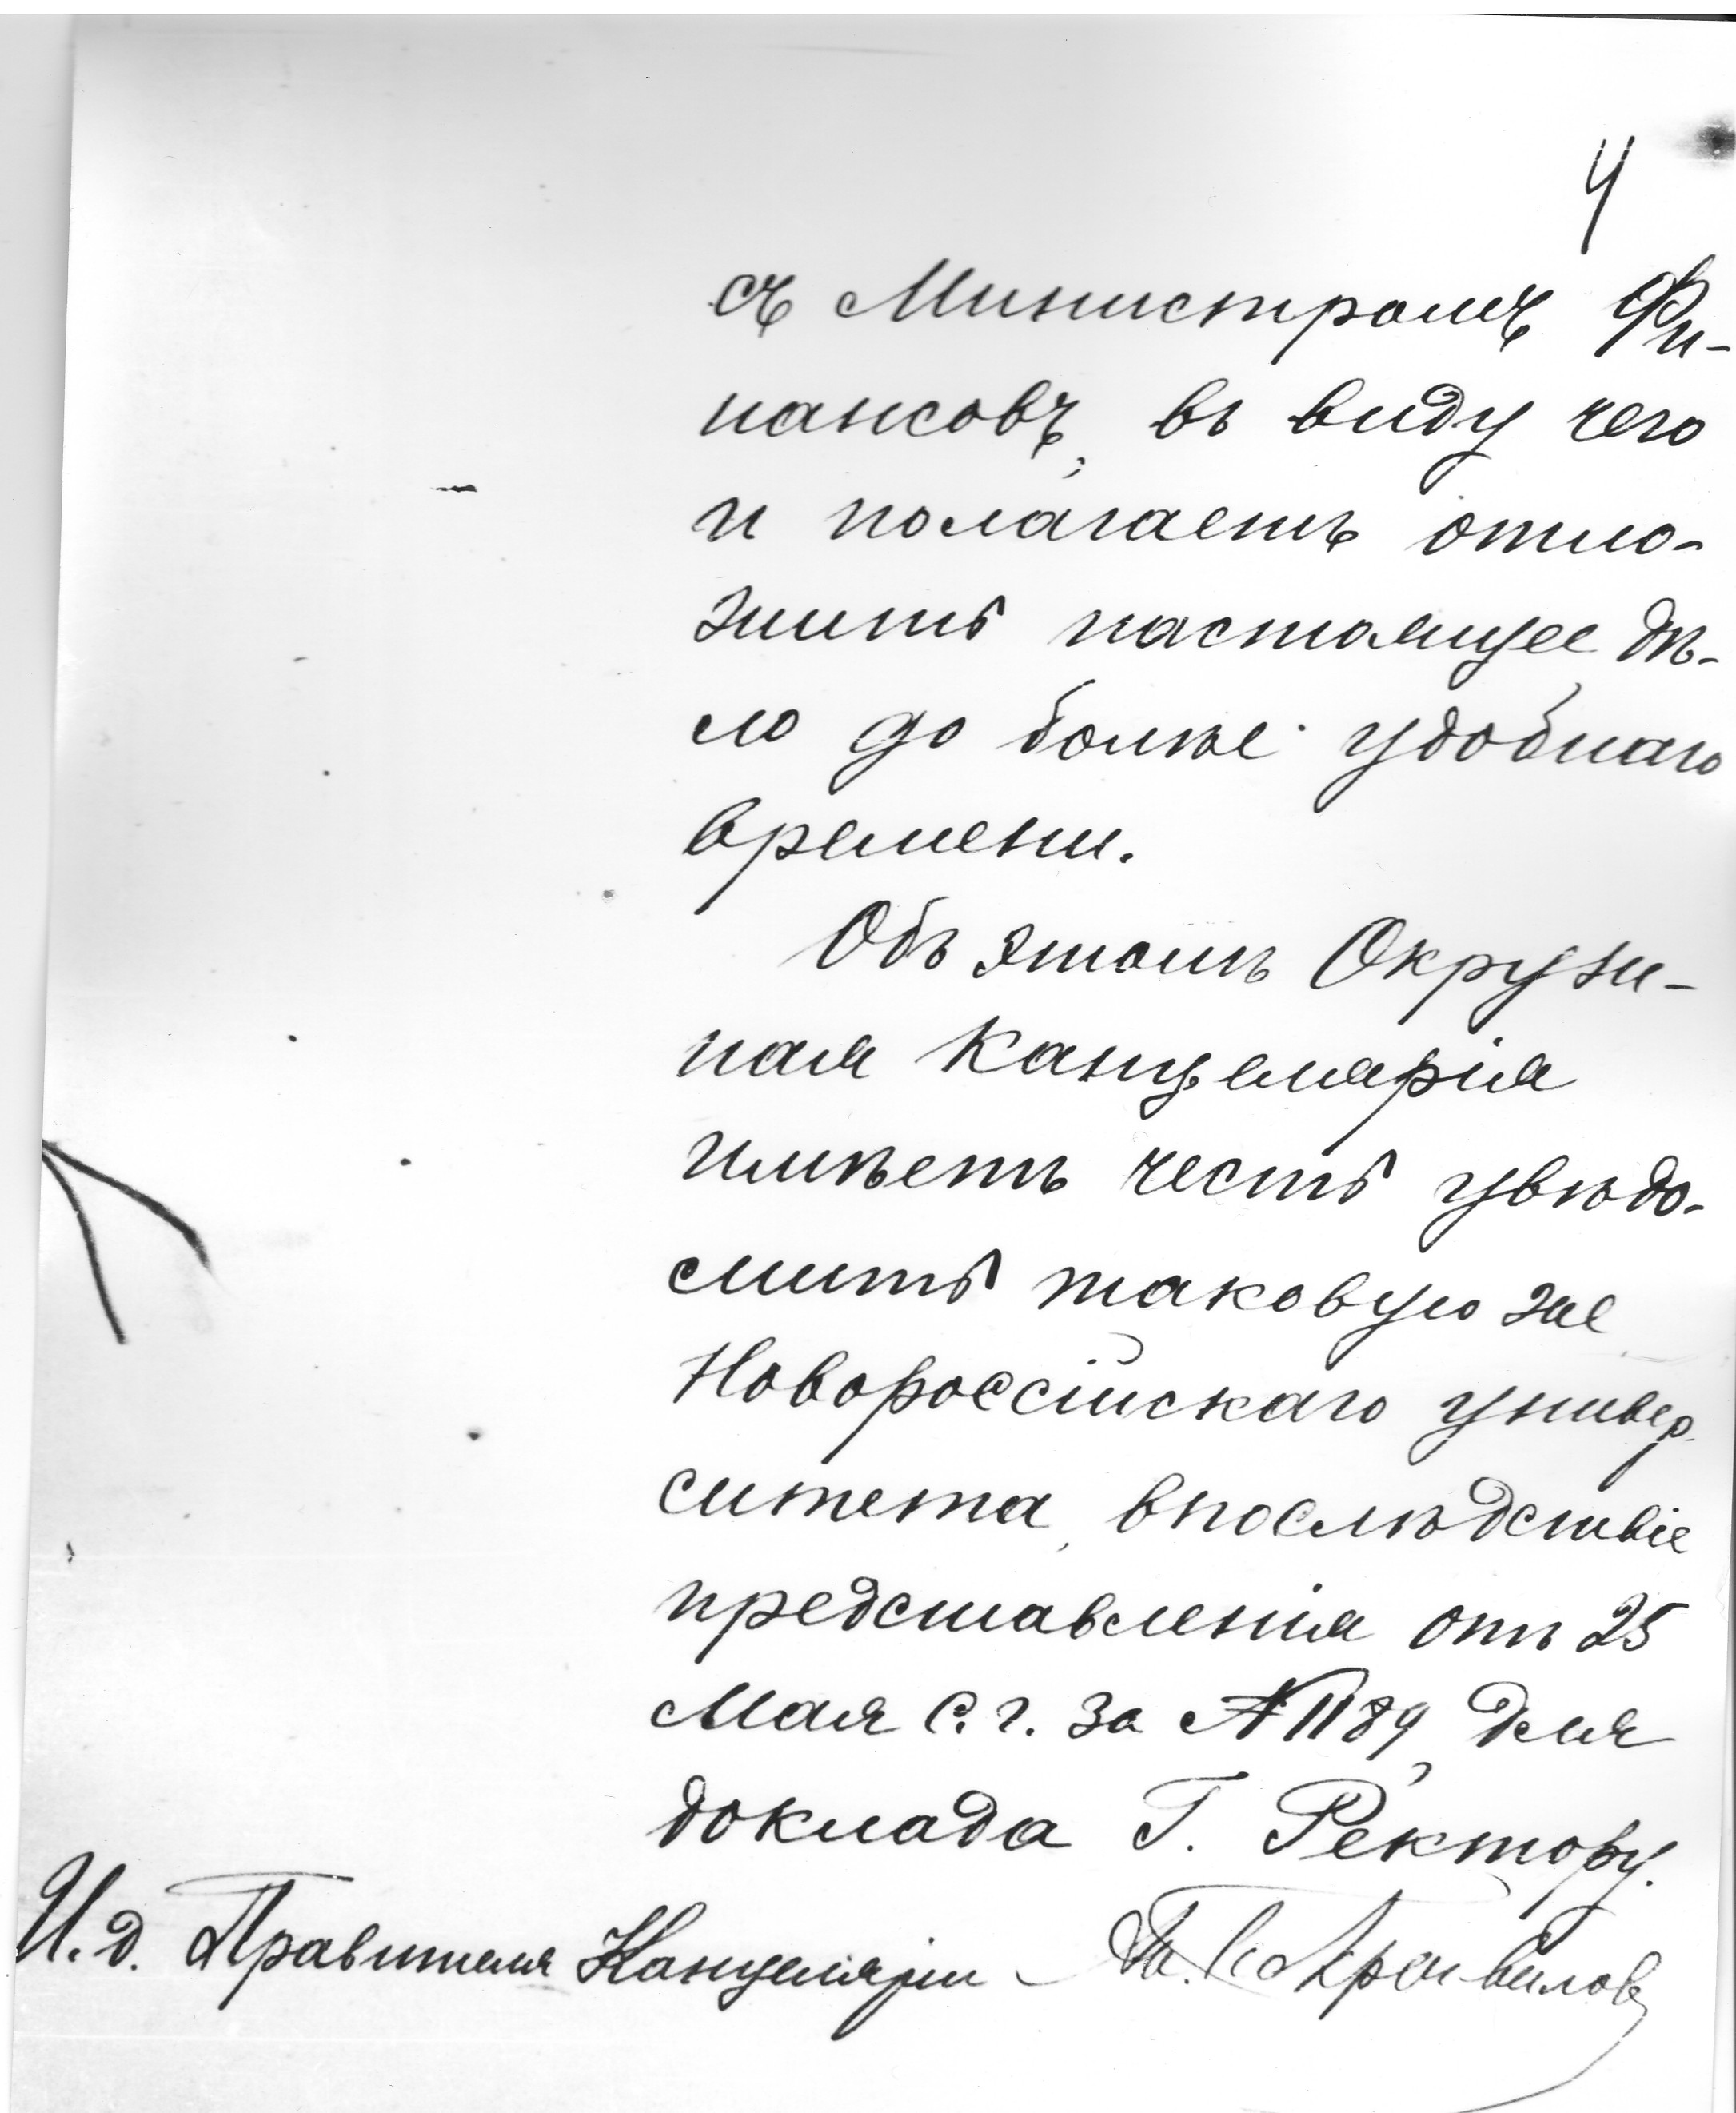 4
съ Министромъ Фи-
нансовъ, въ виду чего
и полагаетъ отло-
жить настоящее дѣ-
ло до болѣе удобнаго
времени.
Объ этомъ Окруж-
ная Канцелярія
имѣетъ честь увѣдо-
мить таковую же
Новороссійскаго универ-
ситета, впослѣдствіе
представленія отъ 25
Мая с. г. за № 1189, для
доклада Г. Ректору.
И. д. Правителя Канцеляріи